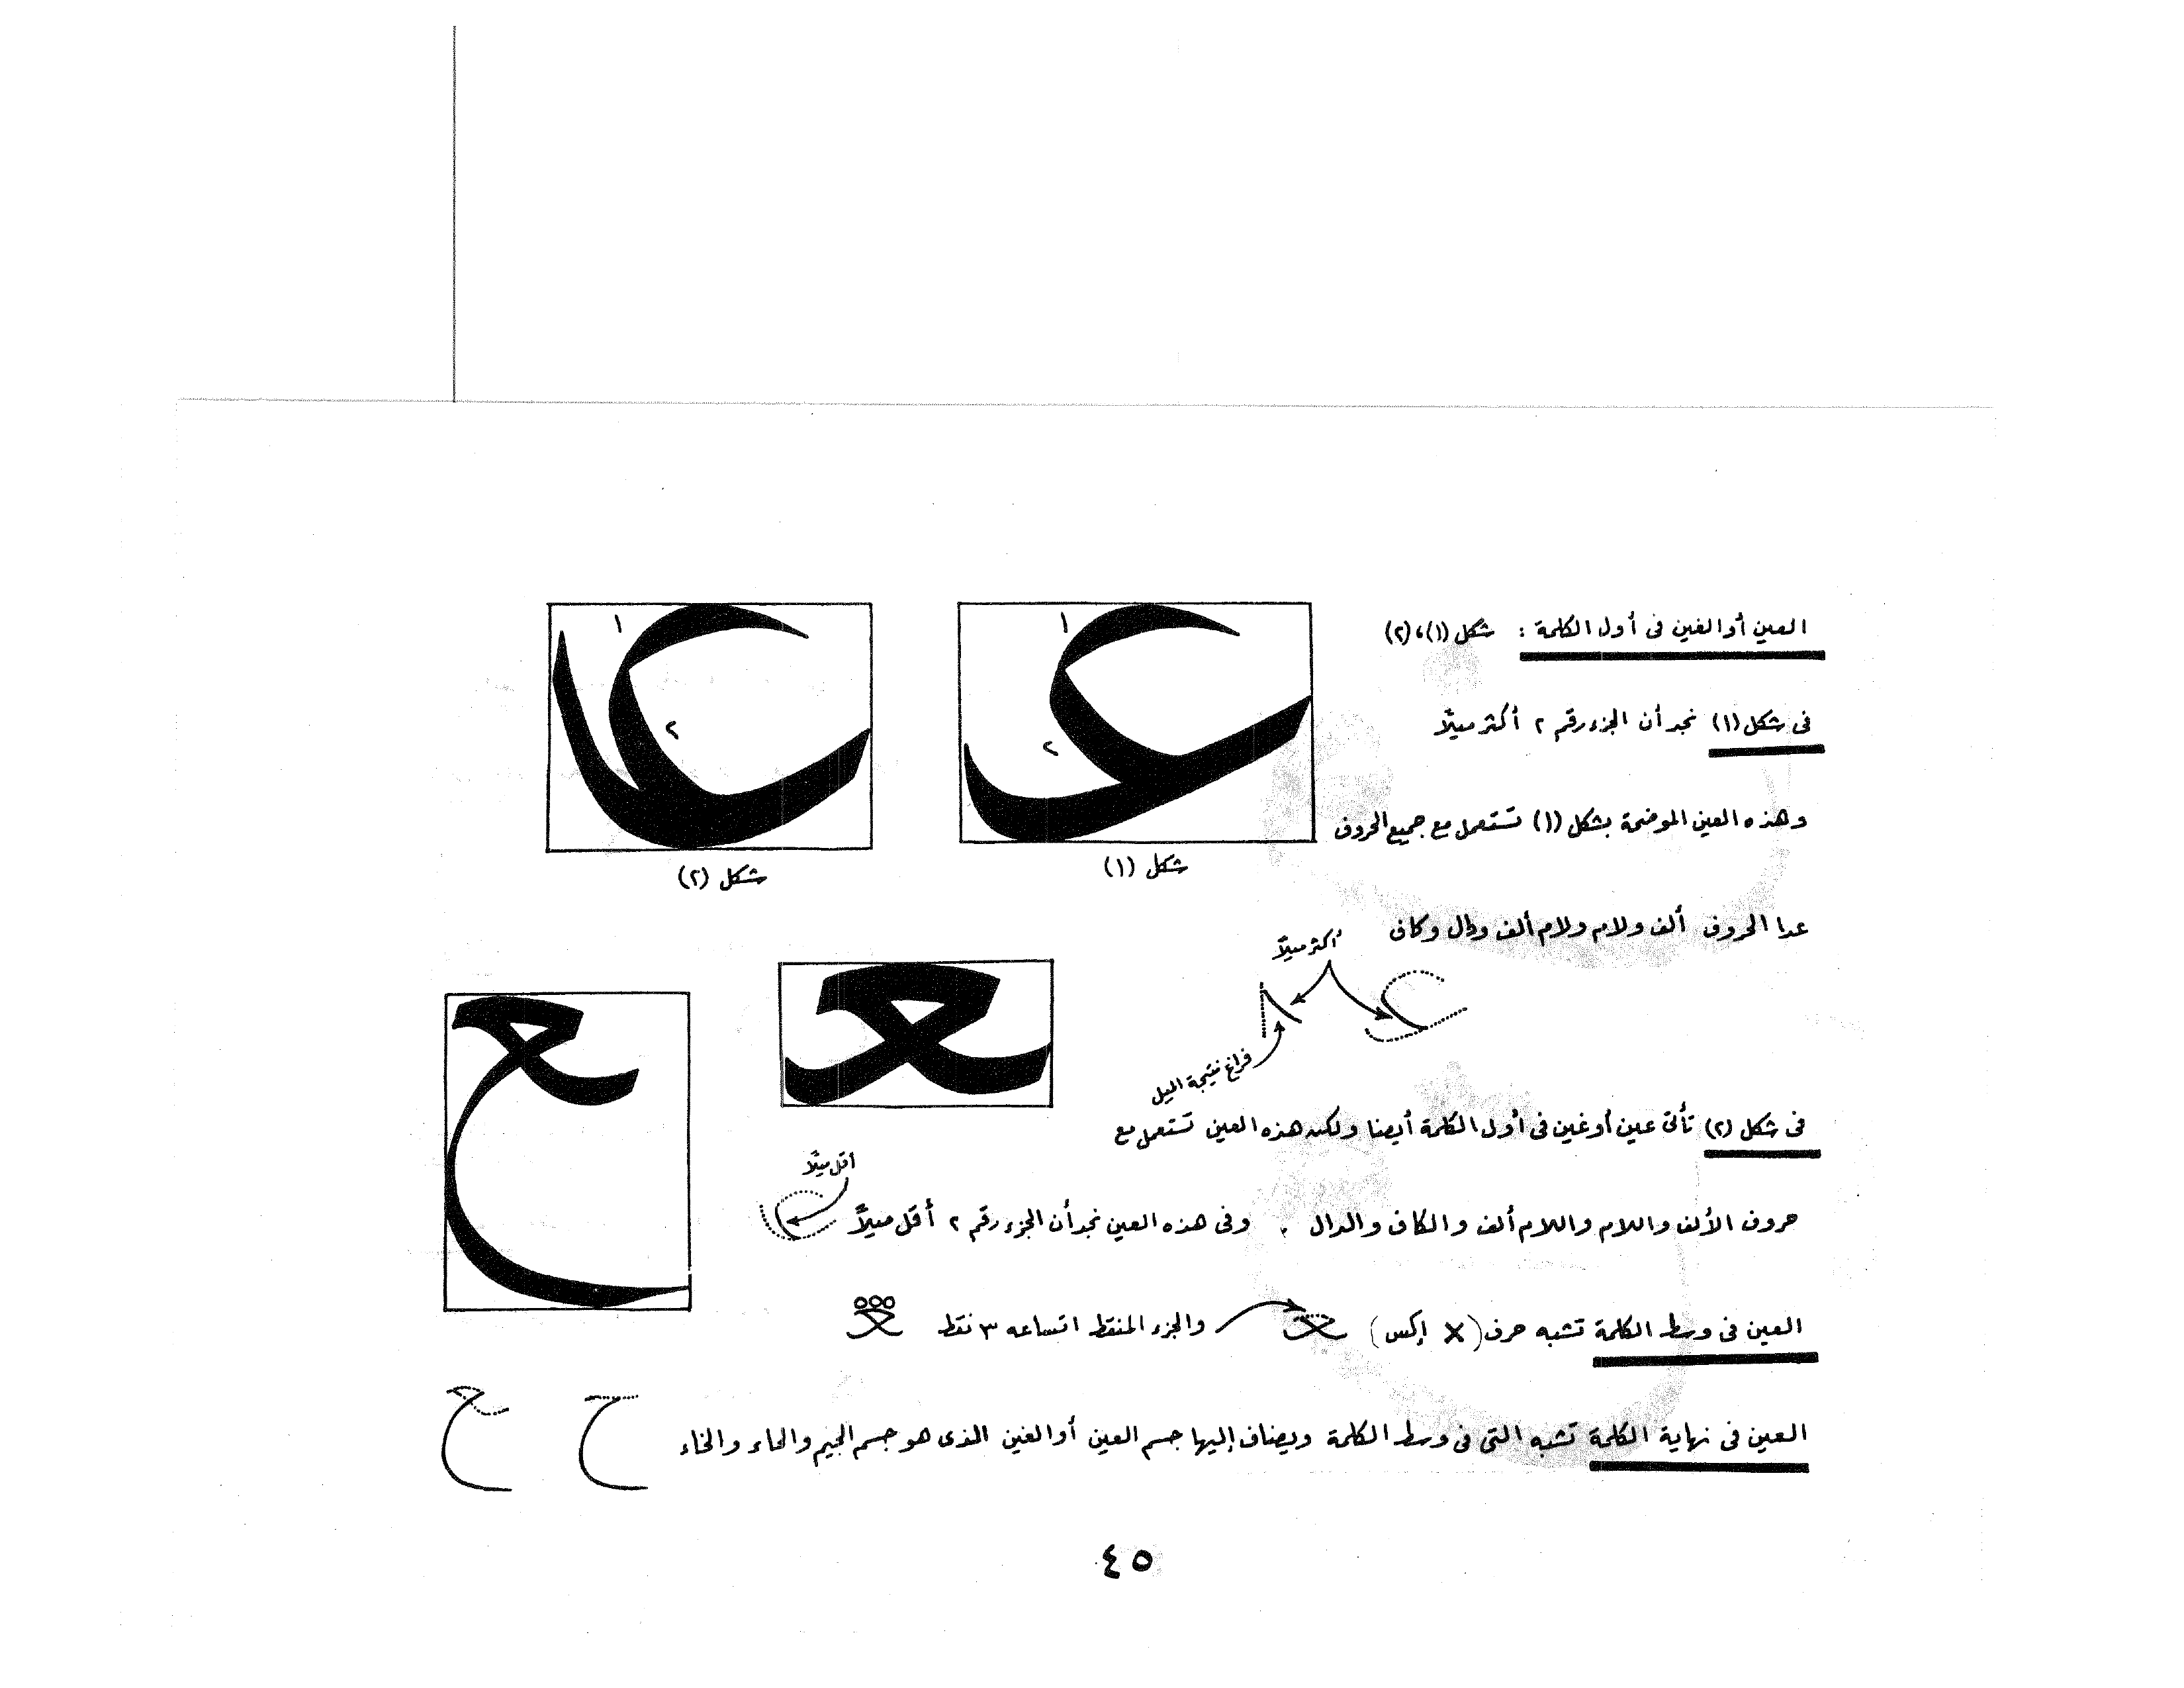 العين أو الغين فى أول الكلمة : شكل (١)، (٢)
١
٢
١
٢
فى شكل (١) نجد أن الجزء رقم ٢ أكثر ميلًا
وهذه العين الموضحة بشكل (١) تستعمل مع جميع الحروف
شكل (١)
شكل (٢)
عدا الحروف ألف ولام ولام ألف ودال وكاف
أكثر ميلًا
فراغ نتيجة الميل
فى شكل (٢) تأتى عين أو غين فى أول الكلمة أيضا ولكن هذه العين تستعمل مع
أقل ميلًا
حروف الألف واللام واللام ألف والكاف والدال . وفى هذه العين نجد أن الجزء رقم ٢ أقل ميلًا
العين فى وسط الكلمة تشبه حرف (X إكس) والجزء المنقط اتساعه ٣ نقط
العين فى نهاية الكلمة تشبه التى فى وسط الكلمة ويضاف إليها جسم العين أو الغين الذى هو جسم الجيم والحاء والخاء
٤٥